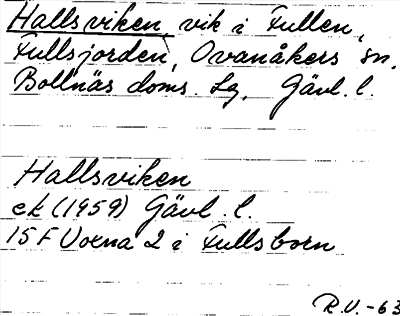 Hallsviken, vik i Fullen,
Fullsjorden, Ovanåkers sn.
Bollnäs doms. Lg, Gävl. l.
Hallsviken
ek (1959) Gävl. l.
15 F Voxna 2 i Fullsborn
R.V. -63